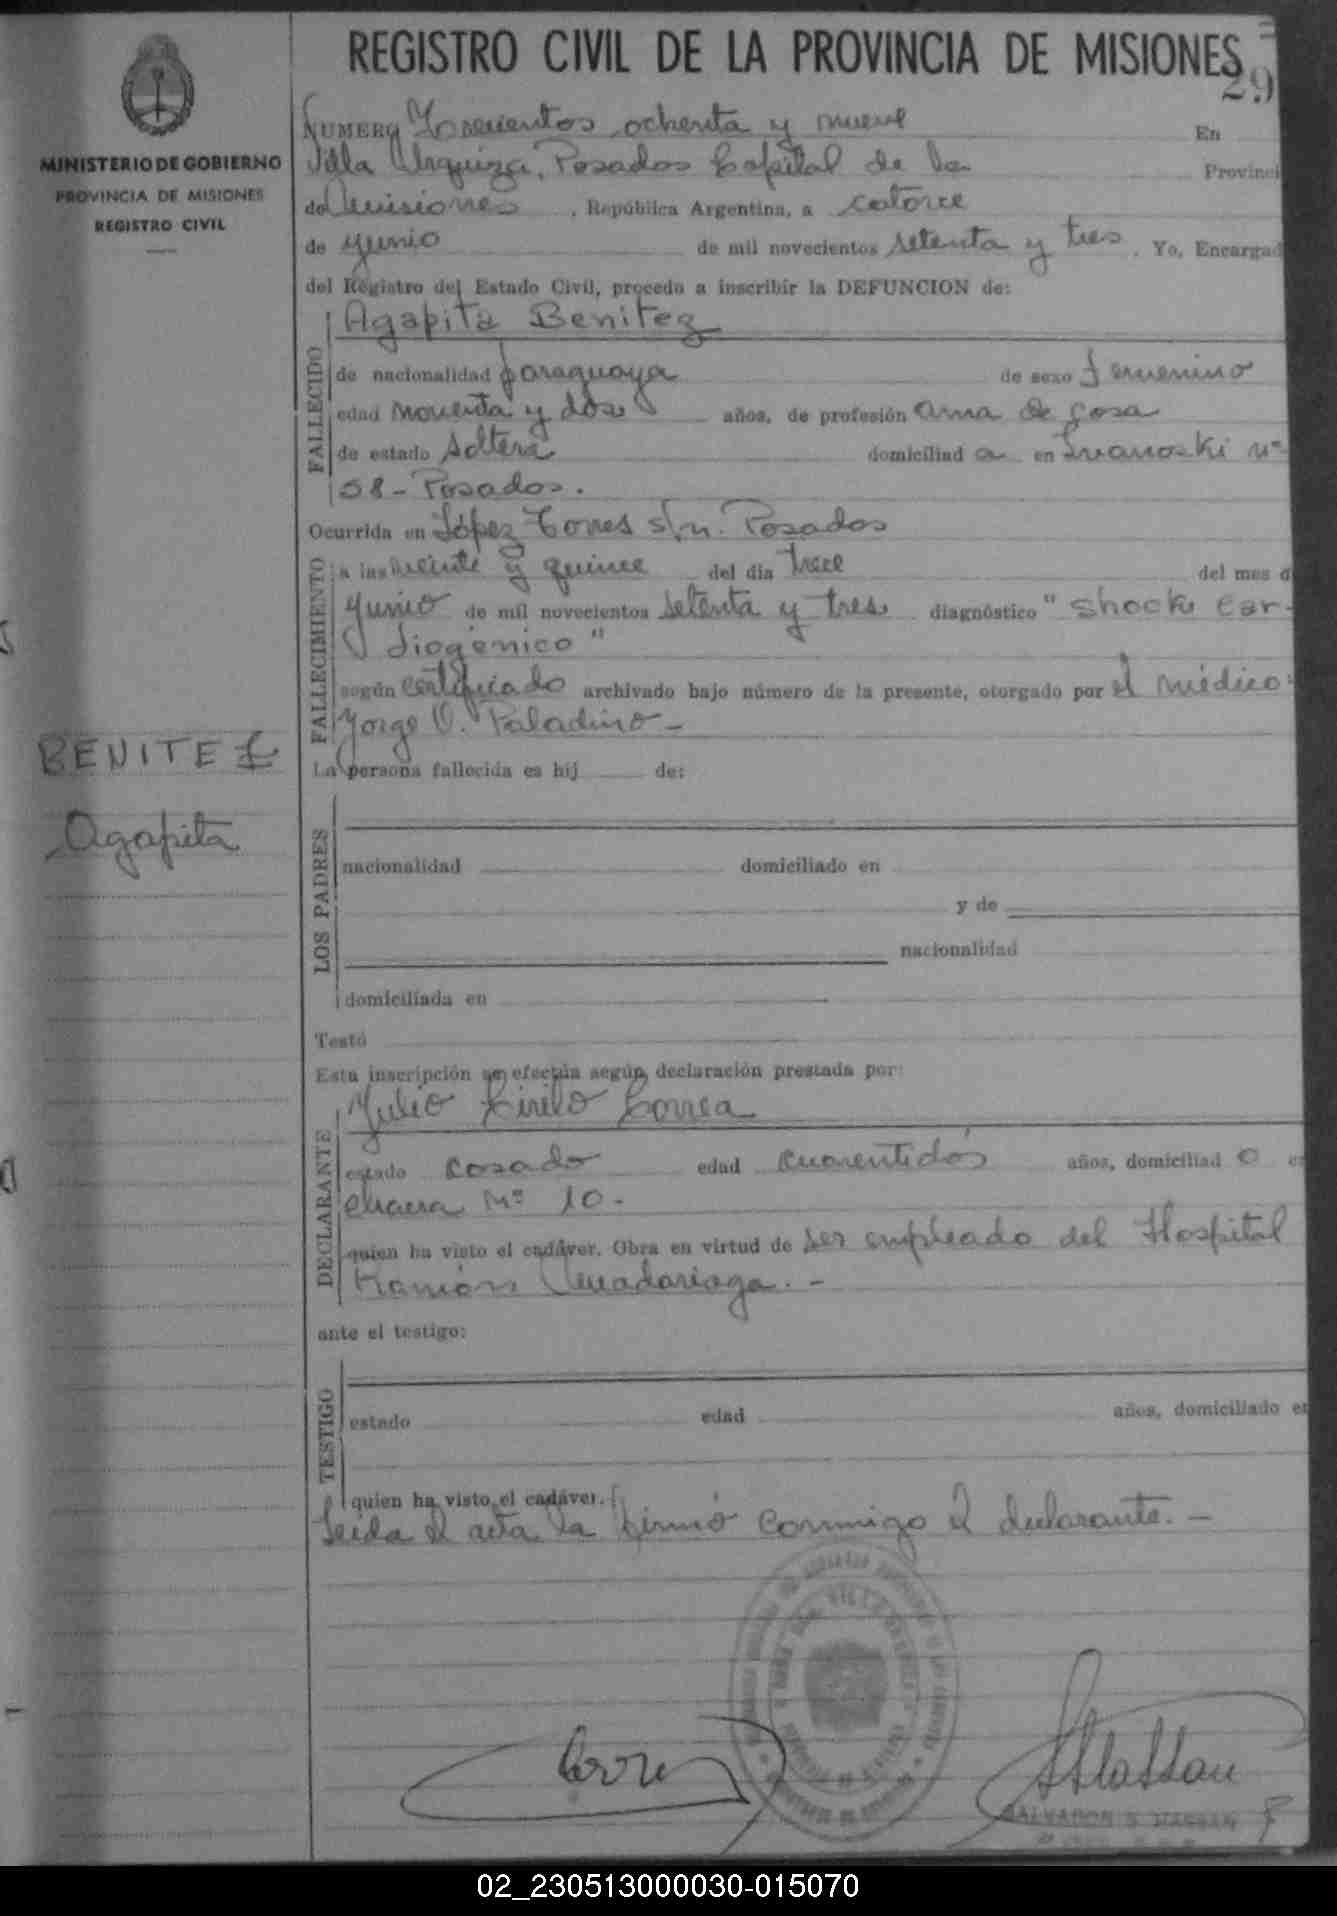 REGISTRO CIVIL DE LA PROVINCIA DE MISIONES
29
MINISTERIO DE GOBIERNO
PROVINCIA DE MISIONES
REGISTRO CIVIL
NUMERO Trescientos ochenta y nueve En
Villa Urquiza, Posadas Capital de la Provinci
de Misiones, República Argentina, a catorce
de Junio de mil novecientos setenta y tres. Yo, Encargad
del Registro del Estado Civil, procedo a inscribir la DEFUNCION de:
Agapita Benitez
FALLECIDO
de nacionalidad paraguaya de sexo femenino
edad noventa y dos años, de profesión ama de casa
de estado soltera domiciliad a en Ivanoski Nº
58 - Posadas.
Ocurrida en López Torres s/n. Posadas
FALLECIMIENTO
a las veinte y quince del dia trece del mes d
Junio de mil novecientos setenta y tres diagnóstico "shock car-
diogénico"
según certificado archivado bajo número de la presente, otorgado por el médico:
Jorge V. Paladino -
BENITEZ
Agapita
La persona fallecida es hij de:
LOS PADRES
nacionalidad domiciliado en
y de
nacionalidad
domiciliada en
Testó
Esta inscripción se efectúa según declaración prestada por:
Julio Cirilo Correa
DECLARANTE
estado casado edad cuarentidós años, domiciliad o e
chacra Nº 10 -
quien ha visto el cadáver. Obra en virtud de ser empleado del Hospital
Ramón Madariaga. -
ante el testigo:
TESTIGO
estado edad años, domiciliado e
quien ha visto el cadáver.
Leida el acta la firmó conmigo el declarante. -
SALVADOR S. HASSAN
02_230513000030-015070